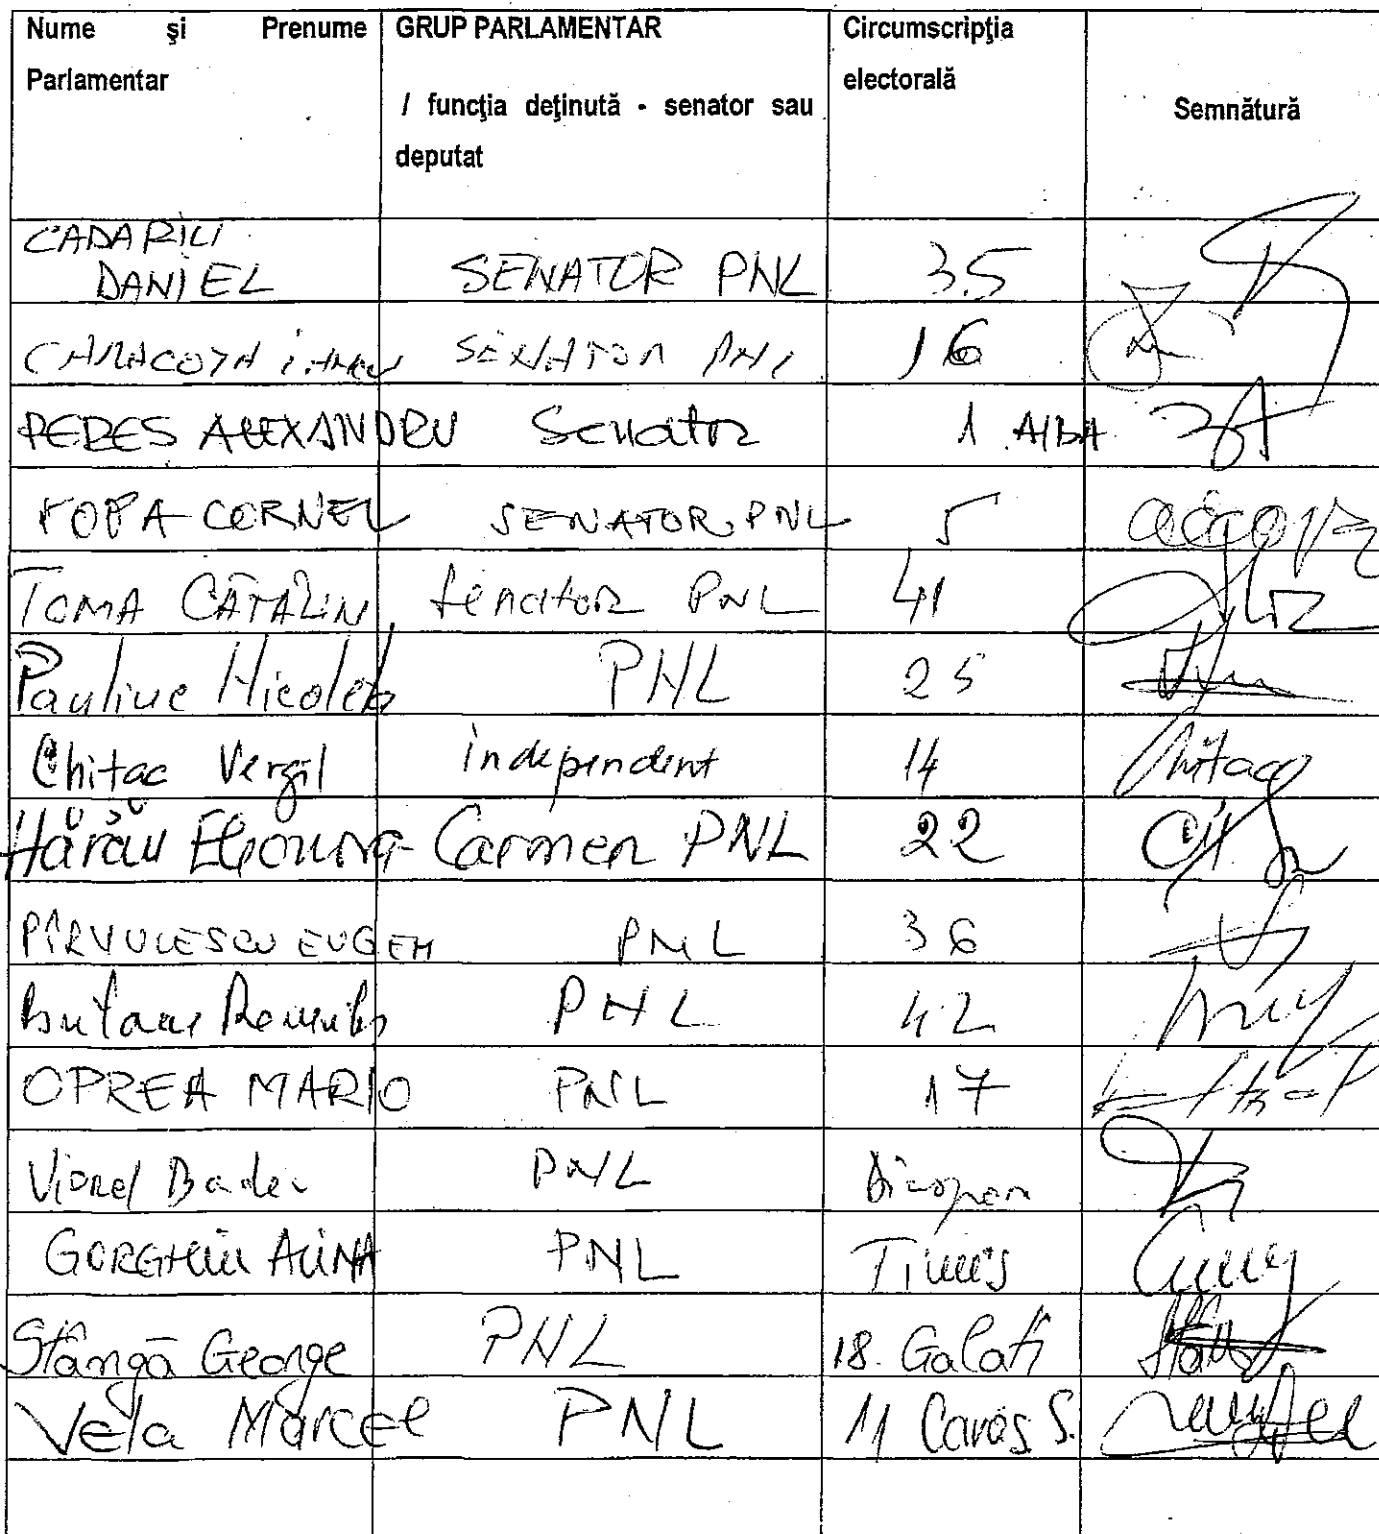 Nume și Prenume Parlamentar
GRUP PARLAMENTAR
/ funcția deținută - senator sau deputat
Circumscripția electorală
Semnătură
CADARIU DANIEL SENATOR PNL 35
CARACOTA IANCU SENATOR PNL 16
PEREȘ ALEXANDRU Senator 1 ALBA
POPA CORNEL SENATOR PNL 5
TOMA CĂTĂLIN Senator PNL 41
Pauliuc Nicoleta PNL 25
Chitac Vergil independent 14
Hărău Eleonora Carmen PNL 22
PÎRVULESCU EUGEN PNL 36
PNL 42
OPREA MARIO PNL 17
Viorel Badea PNL Diaspora
GORGHIU ALINA PNL Timiș
Stângă George PNL 18. Galati
Vela Marcel PNL 11 Caraș S.